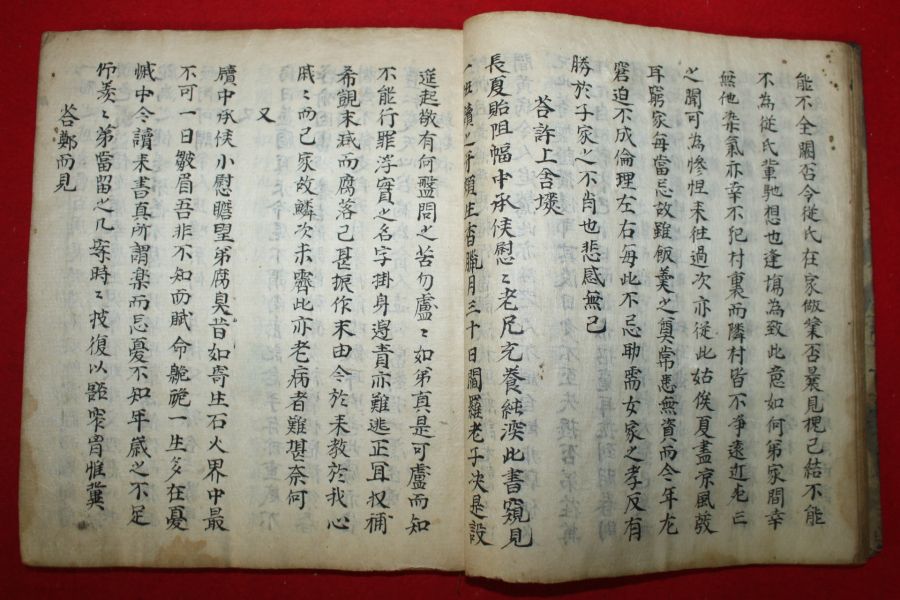 能不全關否令從氏在家做業否曩見槐已結不能
不為從氏輩馳想也逢塲為致此意如何弟家間幸
無他染氣亦幸不犯村裏而隣村皆不爭遠近尨三
之聞可為慘怛来往過次亦從此姑俟夏盡凉風發
耳窮家每當忌故雖飯羹之奠常患無資而今年尤
窘迫不成倫理左右每此不忌助需女家之孝反有
勝於子家之不肖也悲感無已
答許上舍墣
長夏貽阻幅中承俟慰〻老兄充養純深此書窺見
一班讀之開顔生香臘月三十日閻羅老子决是設
莚起敬有何盤問之苦勿慮〻如弟真是可慮而知
不能行罪浮實之名字掛身邊責亦難逃正耳収補
希覬末碱而腐落已甚振作末由今於来教於我心
戚〻而已家故鱗次未霽此亦老病者難堪奈何
又
牘中承俟小慰瞻望弟腐臭昔如寄生石火界中最
不可一日皺眉吾非不知而賦命鮠脆一生多在憂
慽中今讀来書真所謂楽而忘憂不知年歲之不足
仰羨〻弟當留之几案時〻披復以豁窄胷惟冀
答鄭而見